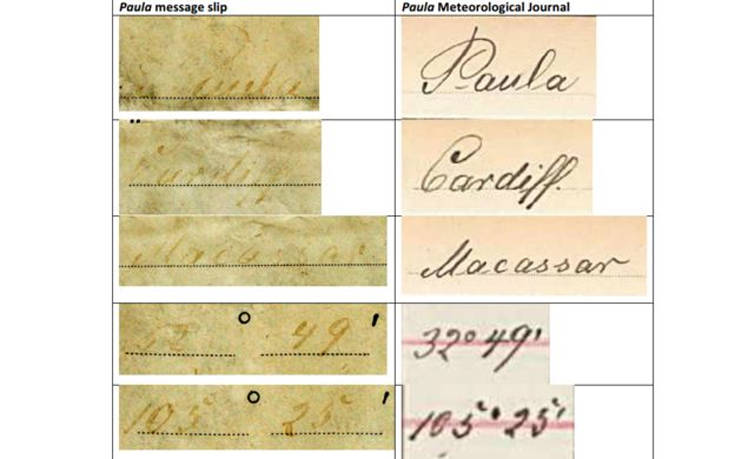 Paula message slip
Paula Meteorological Journal
Paula
Cardiff
Cardiff.
Macassar
Macassar
32° 49'
32° 49'
103° 25'
103° 25'